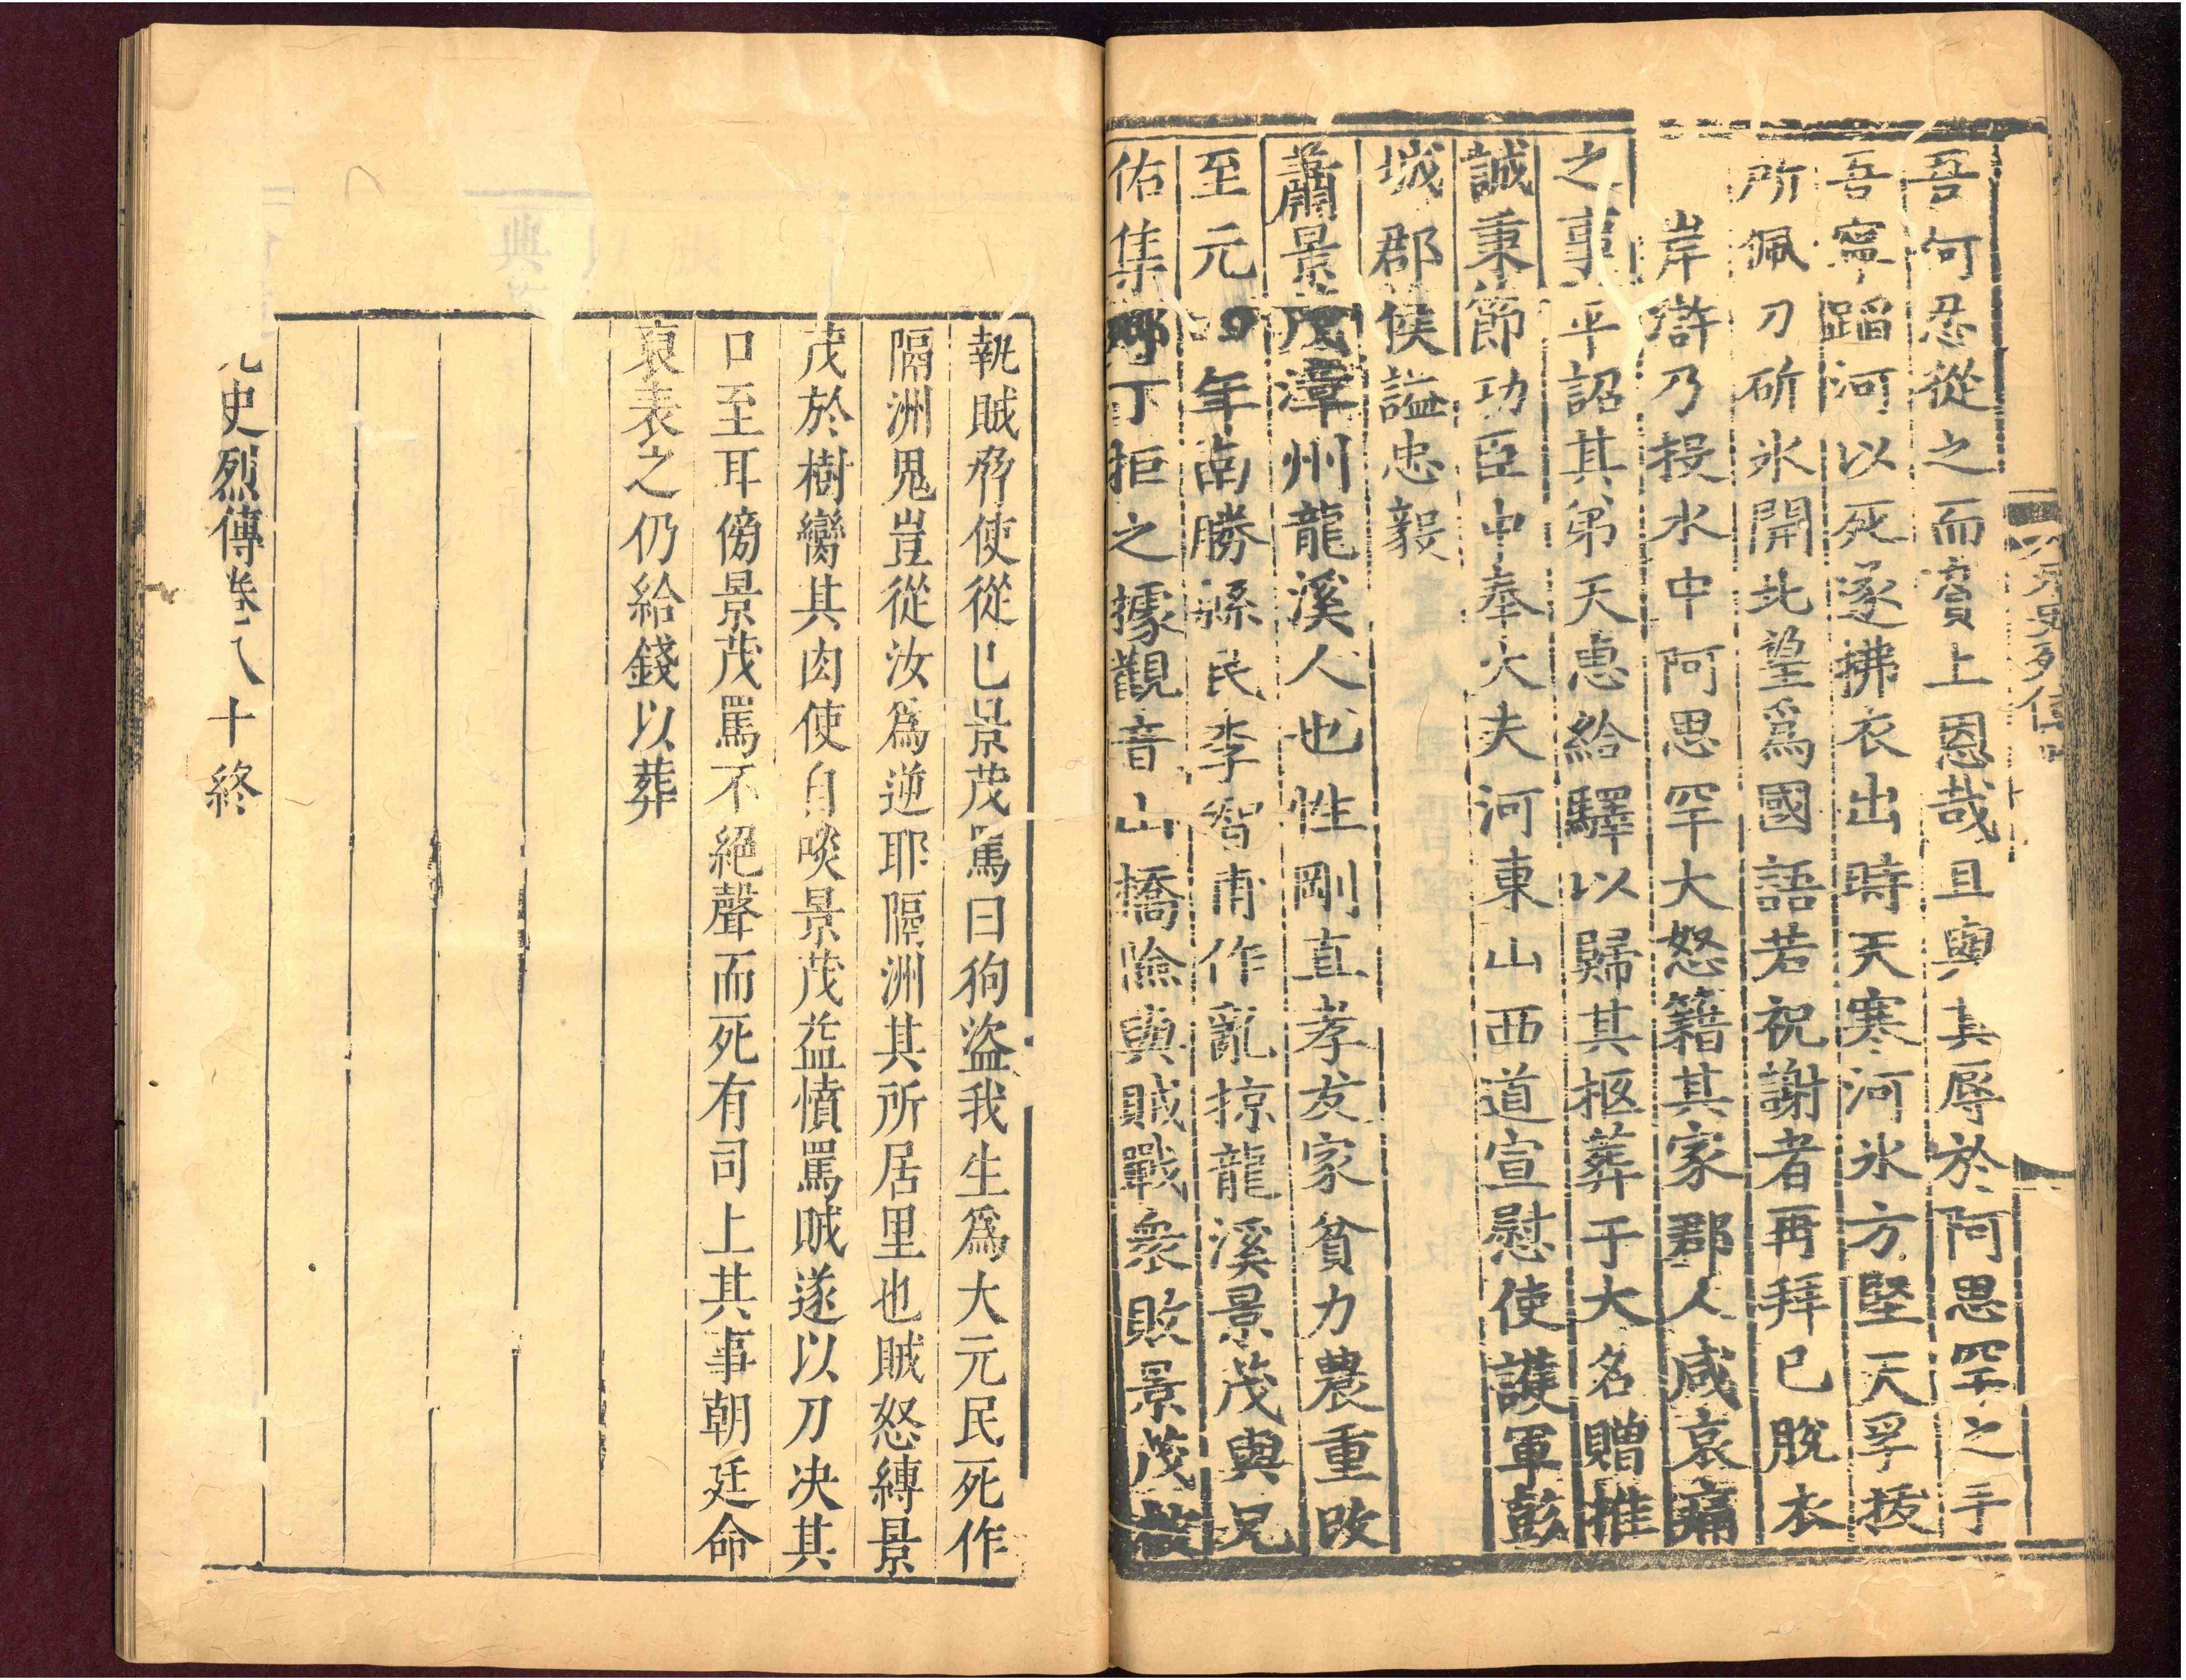 吾何忍從之而齎上恩哉且與其辱於阿思罕之手
吾寧蹈河以死遂拂衣出時天寒河氷方堅天孚拔
所佩刀斫氷開北望爲國語若祝謝者再拜已脫衣
岸滸乃投水中阿思罕大怒籍其家郡人咸哀痛
之事平詔其弟天惠給驛以歸其柩葬于大名贈推
誠秉節功臣中奉大夫河東山西道宣慰使護軍彭
城郡侯謚忠毅
蕭景茂漳州龍溪人也性剛直孝友家貧力農重改
至元四年南勝縣民李智甫作亂掠龍溪景茂與兄
佑集鄉丁拒之據觀音山橋險與賊戰衆敗景茂被
執賊脅使從已景茂罵曰狗盗我生爲大元民死作
隔洲鬼豈從汝爲逆耶隔洲其所居里也賊怒縛景
茂於樹臠其肉使自啖景茂益憤罵賊遂以刀决其
口至耳傍景茂罵不絕聲而死有司上其事朝廷命
褒表之仍給錢以葬
元史烈傳卷八十終